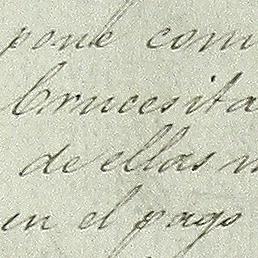 pone com
Crucesita
de ellas n
en el pago